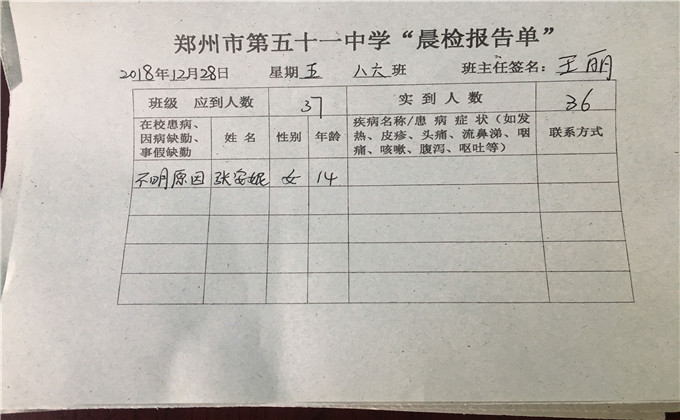 郑州市第五十一中学“晨检报告单”
2018年12月28日 星期五 八六班 班主任签名：王丽
班级 应到人数 37 实到人数 36
在校患病、因病缺勤、事假缺勤 姓名 性别 年龄 疾病名称/患病症状（如发热、皮疹、头痛、流鼻涕、咽痛、咳嗽、腹泻、呕吐等） 联系方式
不明原因 张安妮 女 14